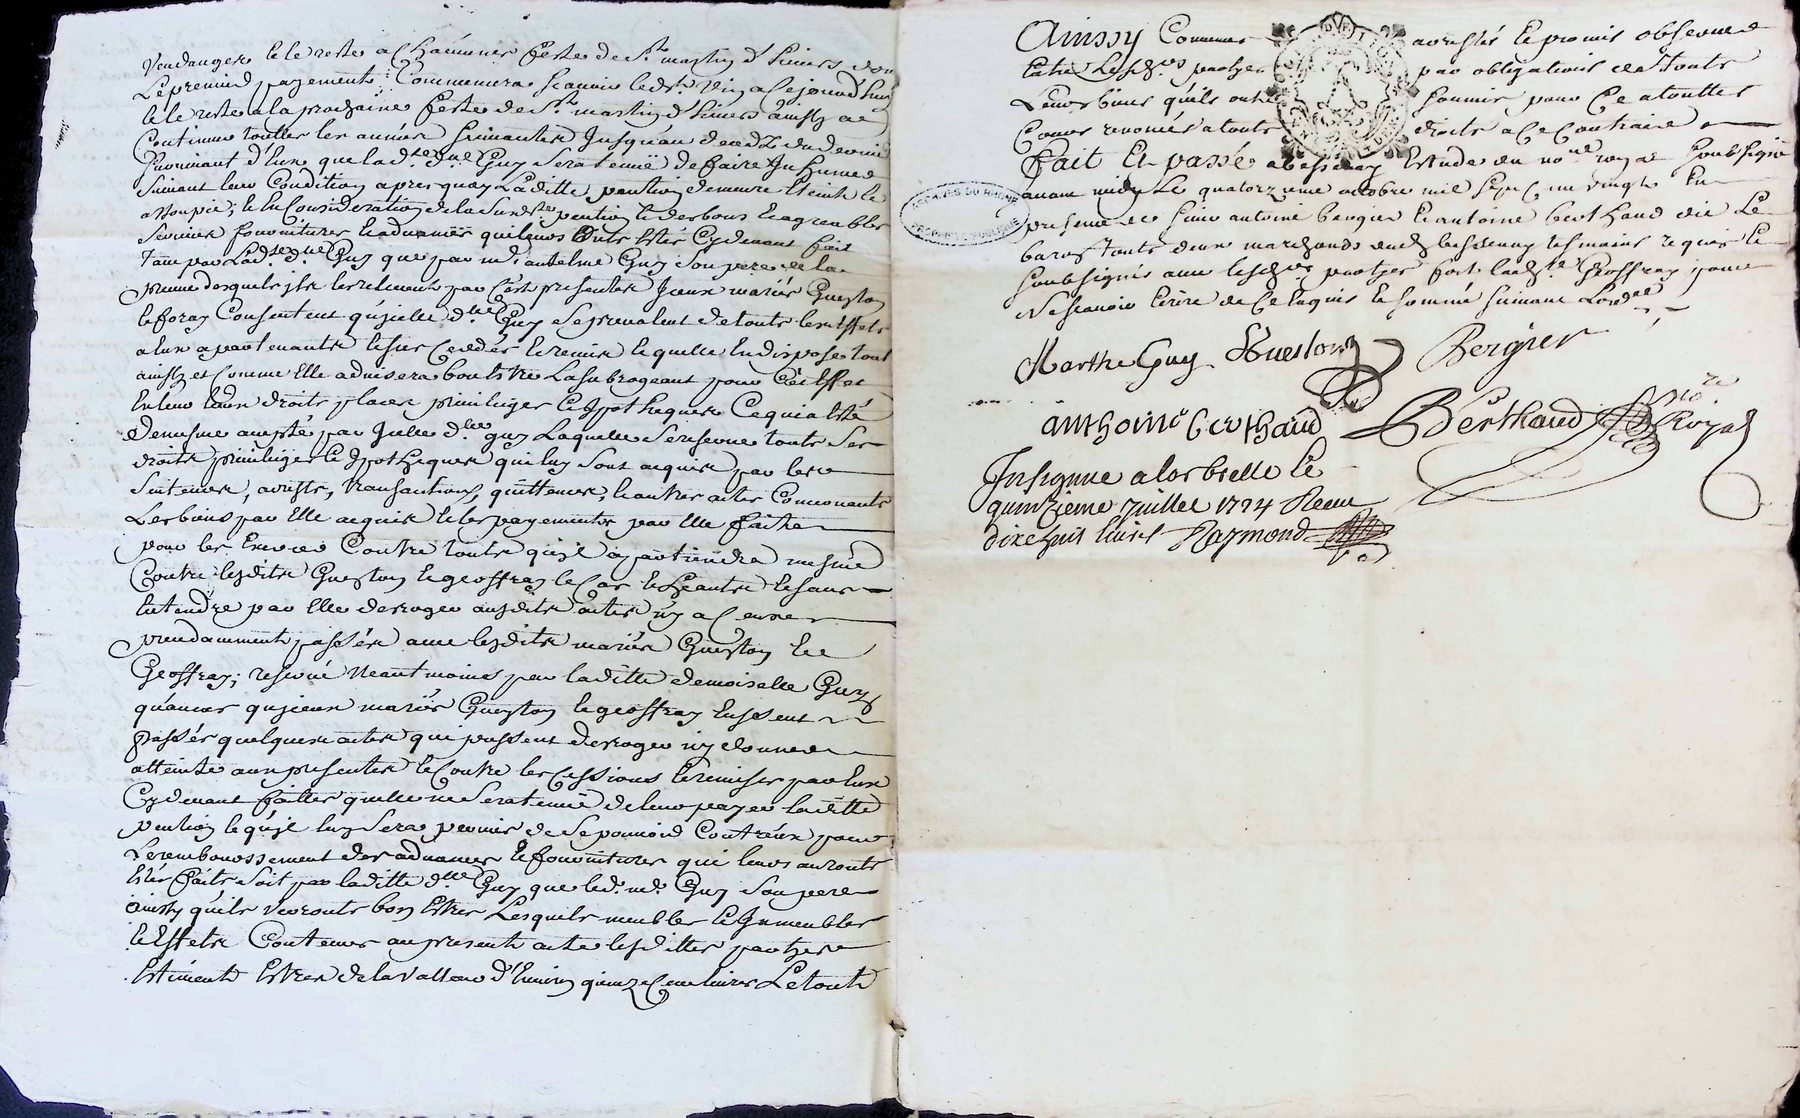 Vendanges et le reste a chacunes feste de St martin d'hivers dont
le premier payement Commencera scavoir led. vin a ce jourd'huy
et le reste a la prochaine feste de St martin d'hivers ainsy a
Continuer touttes les années suivantes Jusqu'au deceds du dernier
survivant d'eux que lad. dlle Guy sera tenuë de faire Inhumer
suivant leur Condition apres quoy laditte pention demeure Eteinte et
assoupie; et En Consideration de la susd.te pention et des bons et agreables
services fournitures et advances qui leurs onts Estés Cydevant fait
tant par lad.te dlle Guy que par md anselme Guy son pere de la
preuve desquels ils les relevent par Ces presentes Iceux mariés Gueston
le foray Consentent qu'icelle dlle Guy se prevalent de touts les Effets
a Eux apartenants et sus Cedés et remis et quelle En dispose tout
ainsy et Comme Elle advisera bon Estre La subrogeant pour Cet Effet
En leur lieux droits places privileges et hypotheques Ce qui a Esté
de mesme accepté par Icelle dlle guy Laquelle se reserve touts ses
droits privileges et hypotheques qui luy sont acquis par les
sentences, arrests, transactions, quittances, et autres actes Concernants
Les biens par Elle acquis et les payements par Elle faits
pour les Exercer Contre touts qu'il apartiendra mesme
Contre lesdits Gueston et geoffray le Cas Echeant et sans
Entendre par Elle deroger ausdits actes ny a Ceux
precedamment passés avec lesdits mariés Gueston et
Geoffray; reservé neantmoins par laditte demoiselle Guy
qu'au cas qu'iceux mariés Gueston et geoffray Eussent
passés quelques actes qui pussent deroger ny donner
atteinte aux presentes et Contre les Cessions et remises par Eux
Cydevant faittes quelle ne sera tenuë de leur payer laditte
pention et qu'il luy sera permis de se pourvoir Contr'eux pour
Le remboursement des advances et fournitures qui leurs auronts
Estés faits soit par laditte dlle Guy que led. md. Guy son pere
ainsy qu'ils verronts bon Estre Lesquels meubles et Immeubles
et Effets Contenus au present acte lesdittes parties
Estiment Estre de la valleur d'Environ quinze Cent livres Le tout
Ainssy Convenu arresté et promis observer
Entre Lesd.es parties par obligations de touts
Leurs biens qu'ils onts soumis pour Ce a touttes
Cours renoncés a touts droits a Ce Contraire
Fait Et passé a bessenay Estude du no.re royal soubsigné
avant midy Le quatorzieme octobre mil sept Cent vingts En
presence de sieur antoine bergier et antoine berthaud dit Le
baron touts deux marchands dud. bessenay tesmoins requis et
soubsignés avec lesd.es parties fors lad.te Geoffray pour
ne scavoir Ecrire de Ce Enquis et sommé suivant Lord.ce
Marthe Guy Gueston Bergier
anthoine berthaud Berthaud No.re Royal
ARCHIVES DU RHONE
Insignué a larbrelle le
quinzieme juillet 1724 Receu
dixe huit livres Raymond